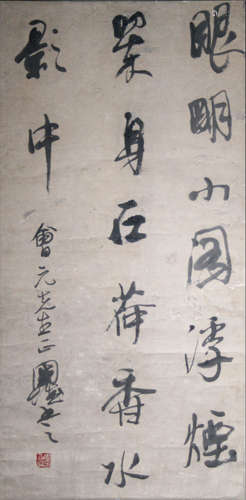 眼明小閣浮煙
翠身在荷香水
影中
會元先生正